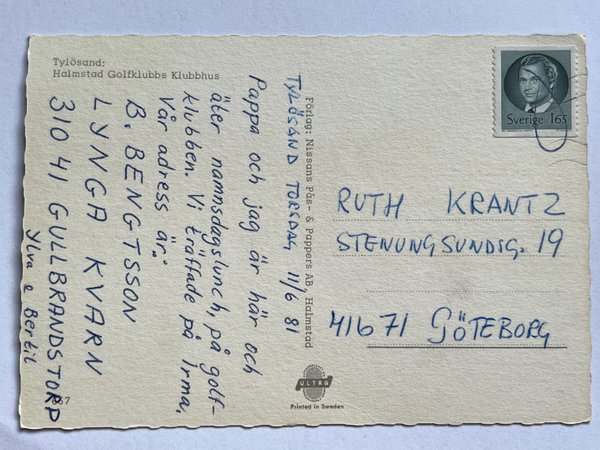 Tylösand:
Halmstad Golfklubbs Klubbhus
TYLÖSAND TORSDAG 11/6 81
Pappa och jag är här och
äter namnsdagslunch, på golf-
klubben. Vi träffade på Irma.
Vår adress är:
B. BENGTSSON
LYNGA KVARN
310 41 GULLBRANDSTORP
Ylva o Bertil
Förlag: Nissans Pås- & Pappers AB, Halmstad
Sverige 165
RUTH KRANTZ
STENUNGSUNDSG. 19
41671 GÖTEBORG
ULTRA
Printed in Sweden